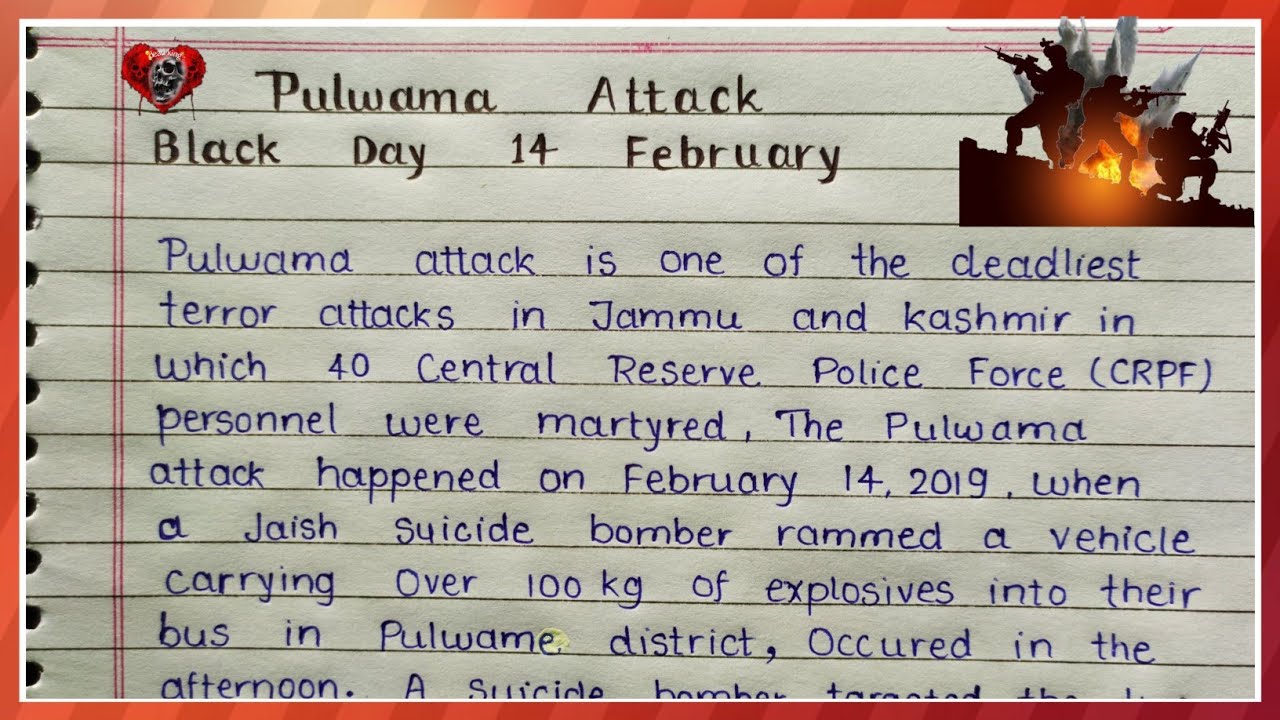 Pulwama Attack
Black Day 14 February
Pulwama attack is one of the deadliest
terror attacks in Jammu and kashmir in
which 40 Central Reserve Police Force (CRPF)
personnel were martyred, The Pulwama
attack happened on February 14, 2019, when
a Jaish suicide bomber rammed a vehicle
carrying Over 100 kg of explosives into their
bus in Pulwame district, Occured in the
afternoon. A suicide bomber targeted the